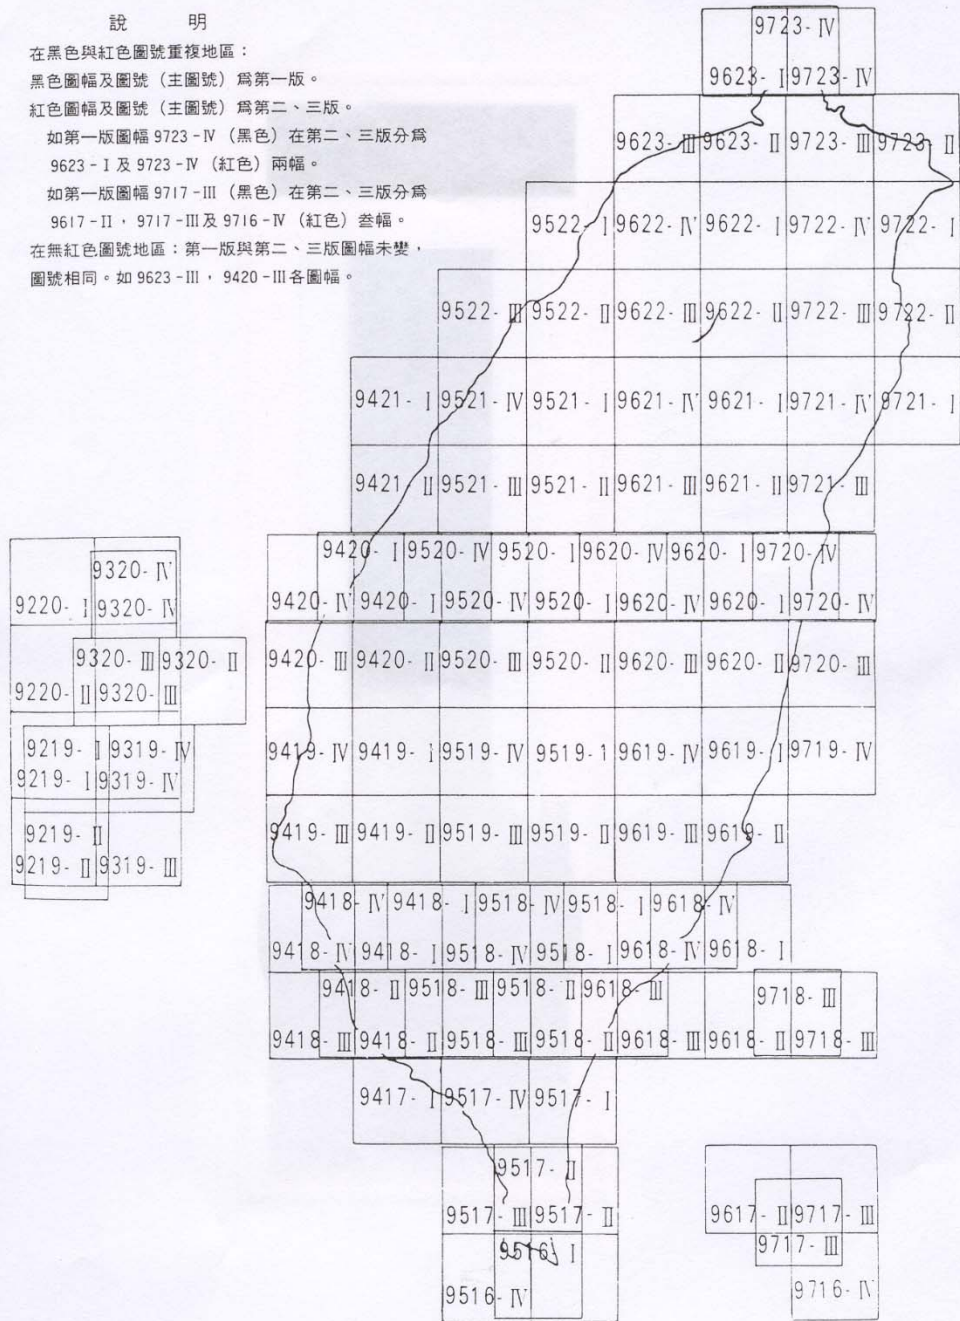 說 明
在黑色與紅色圖號重複地區：
黑色圖幅及圖號（主圖號）爲第一版。
紅色圖幅及圖號（主圖號）爲第二、三版。
如第一版圖幅 9723-Ⅳ（黑色）在第二、三版分爲
9623-Ⅰ及 9723-Ⅳ（紅色）兩幅。
如第一版圖幅 9717-Ⅲ（黑色）在第二、三版分爲
9617-Ⅱ，9717-Ⅲ及 9716-Ⅳ（紅色）叁幅。
在無紅色圖號地區：第一版與第二、三版圖幅未變，
圖號相同。如 9623-Ⅲ，9420-Ⅲ各圖幅。
9723-Ⅳ
9623-Ⅰ 9723-Ⅳ
9623-Ⅲ 9623-Ⅱ 9723-Ⅲ 9723-Ⅱ
9522-Ⅰ 9622-Ⅳ 9622-Ⅰ 9722-Ⅳ 9722-Ⅰ
9522-Ⅲ 9522-Ⅱ 9622-Ⅲ 9622-Ⅱ 9722-Ⅲ 9722-Ⅱ
9421-Ⅰ 9521-Ⅳ 9521-Ⅰ 9621-Ⅳ 9621-Ⅰ 9721-Ⅳ 9721-Ⅰ
9421-Ⅱ 9521-Ⅲ 9521-Ⅱ 9621-Ⅲ 9621-Ⅱ 9721-Ⅲ
9420-Ⅰ 9520-Ⅳ 9520-Ⅰ 9620-Ⅳ 9620-Ⅰ 9720-Ⅳ
9420-Ⅳ 9420-Ⅰ 9520-Ⅳ 9520-Ⅰ 9620-Ⅳ 9620-Ⅰ 9720-Ⅳ
9420-Ⅲ 9420-Ⅱ 9520-Ⅲ 9520-Ⅱ 9620-Ⅲ 9620-Ⅱ 9720-Ⅲ
9419-Ⅳ 9419-Ⅰ 9519-Ⅳ 9519-1 9619-Ⅳ 9619-Ⅰ 9719-Ⅳ
9419-Ⅲ 9419-Ⅱ 9519-Ⅲ 9519-Ⅱ 9619-Ⅲ 9619-Ⅱ
9418-Ⅳ 9418-Ⅰ 9518-Ⅳ 9518-Ⅰ 9618-Ⅳ
9418-Ⅳ 9418-Ⅰ 9518-Ⅳ 9518-Ⅰ 9618-Ⅳ 9618-Ⅰ
9418-Ⅱ 9518-Ⅲ 9518-Ⅱ 9618-Ⅲ 9718-Ⅲ
9418-Ⅲ 9418-Ⅱ 9518-Ⅲ 9518-Ⅱ 9618-Ⅲ 9618-Ⅱ 9718-Ⅲ
9417-Ⅰ 9517-Ⅳ 9517-Ⅰ
9517-Ⅱ
9517-Ⅲ 9517-Ⅱ
9516-Ⅰ
9516-Ⅳ
9320-Ⅳ
9220-Ⅰ 9320-Ⅳ
9320-Ⅲ 9320-Ⅱ
9220-Ⅱ 9320-Ⅲ
9219-Ⅰ 9319-Ⅳ
9219-Ⅰ 9319-Ⅳ
9219-Ⅱ
9219-Ⅱ 9319-Ⅲ
9617-Ⅱ 9717-Ⅲ
9717-Ⅲ
9716-Ⅳ